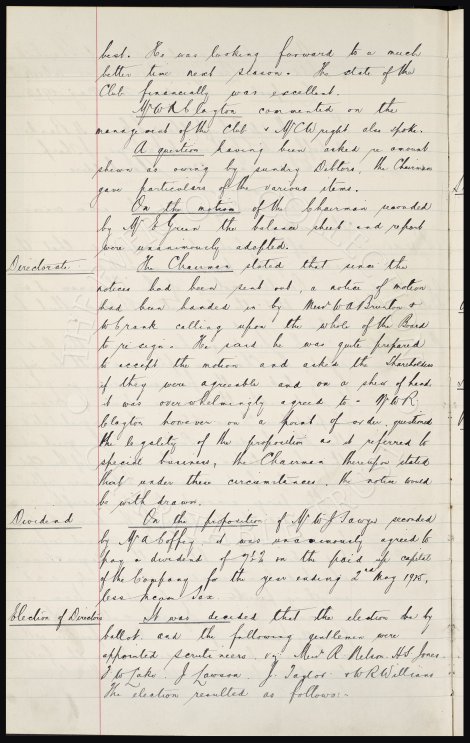 best. He was looking forward to a much
better time next season. The state of the
Club financially was excellent.
Mr W R Clayton commented on the
management of the club & Mr C Wright also spoke.
A question having been asked re amount
shewn as owing by sundry Debtors, the Chairman
gave particulars of the various items.
On the motion of the Chairman seconded
by Mr E Green the balance sheet and report
were unanimously adopted.
Directorate
The Chairman stated that since the
notices had been sent out, a notice of motion
had been handed in by Messrs W A Brunton &
W Crank calling upon the whole of the Board
to re sign. He said he was quite prepared
to accept the motion and asked the Shareholders
if they were agreeable and on a shew of hands
it was overwhelmingly agreed to. W R
Clayton however on a point of order, questioned
the legality of the proposition as it referred to
special business, the Chairman thereupon stated
that under these circumstances, the notice would
be with drawn.
Dividend
On the proposition of Mr W J Sawyer seconded
by Mr A Coffey it was unanimously agreed to
pay a dividend of on the paid up capital
of the Company for the year ending 2nd May
less Income Tax.
Election of Directors
It was decided that the election be by
ballot and the following gentlemen were
appointed scrutineers, viz Messrs R Nelson H S Jones
J Lawson. J. Taylor & W R Williams
The election resulted as follows:-